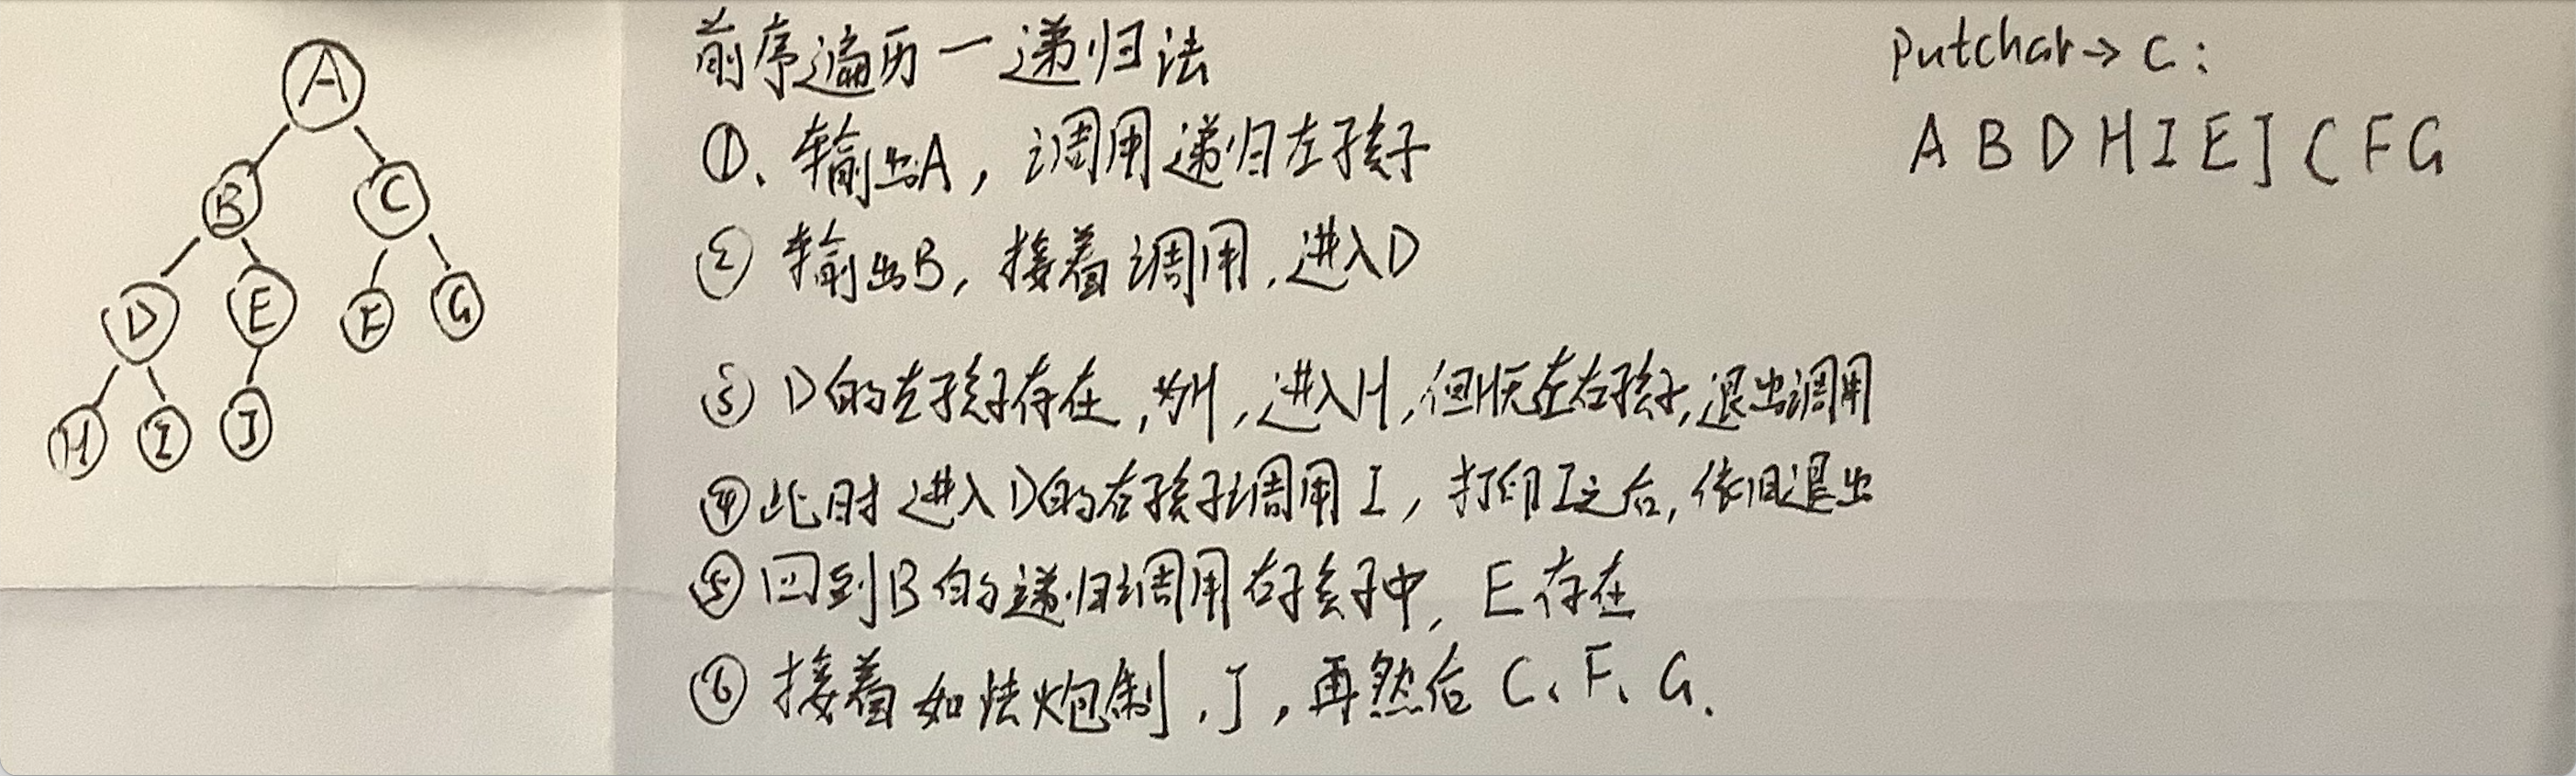 A
B C
D E F G
H I J
前序遍历一递归法
①、输出A，调用递归左孩子
② 输出B，接着调用，进入D
③ D的左孩子存在，为H，进入H，但H无左右孩子，退出调用
④ 此时进入D的右孩子调用I，打印I之后，依旧退出
⑤ 回到B的递归调用右孩子中，E存在
⑥ 接着如法炮制，J，再然后C、F、G．
Putchar→C：
A B D H I E J C F G